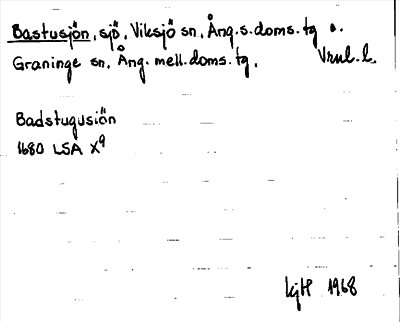 Bastusjön, sjö, Viksjö sn, Ång.s.doms.tg o.
Graninge sn, Ång. mell.doms.tg.
Badstugusiön
1680 LSA X9
1968